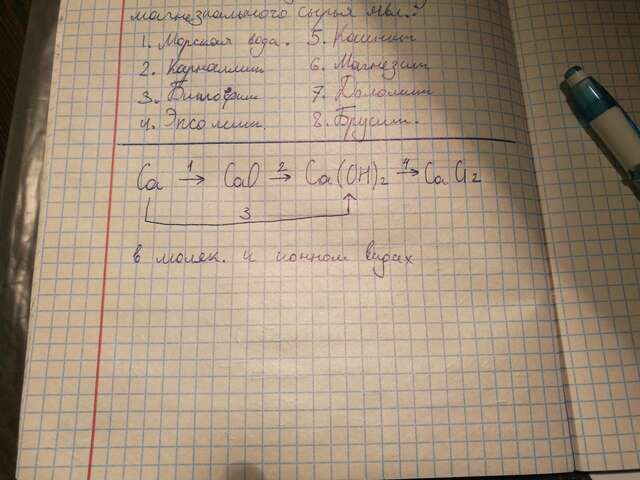 магнезиального сырья явл.:
1. Морская вода. 5. Каинит
2. Карналлит 6. Магнезит
3. Бишофит 7. Доломит
4. Эпсомит 8. Брусит.
Ca 1→ CaO 2→ Ca(OH)2 4→ CaCl2
3
в молек. и ионном видах